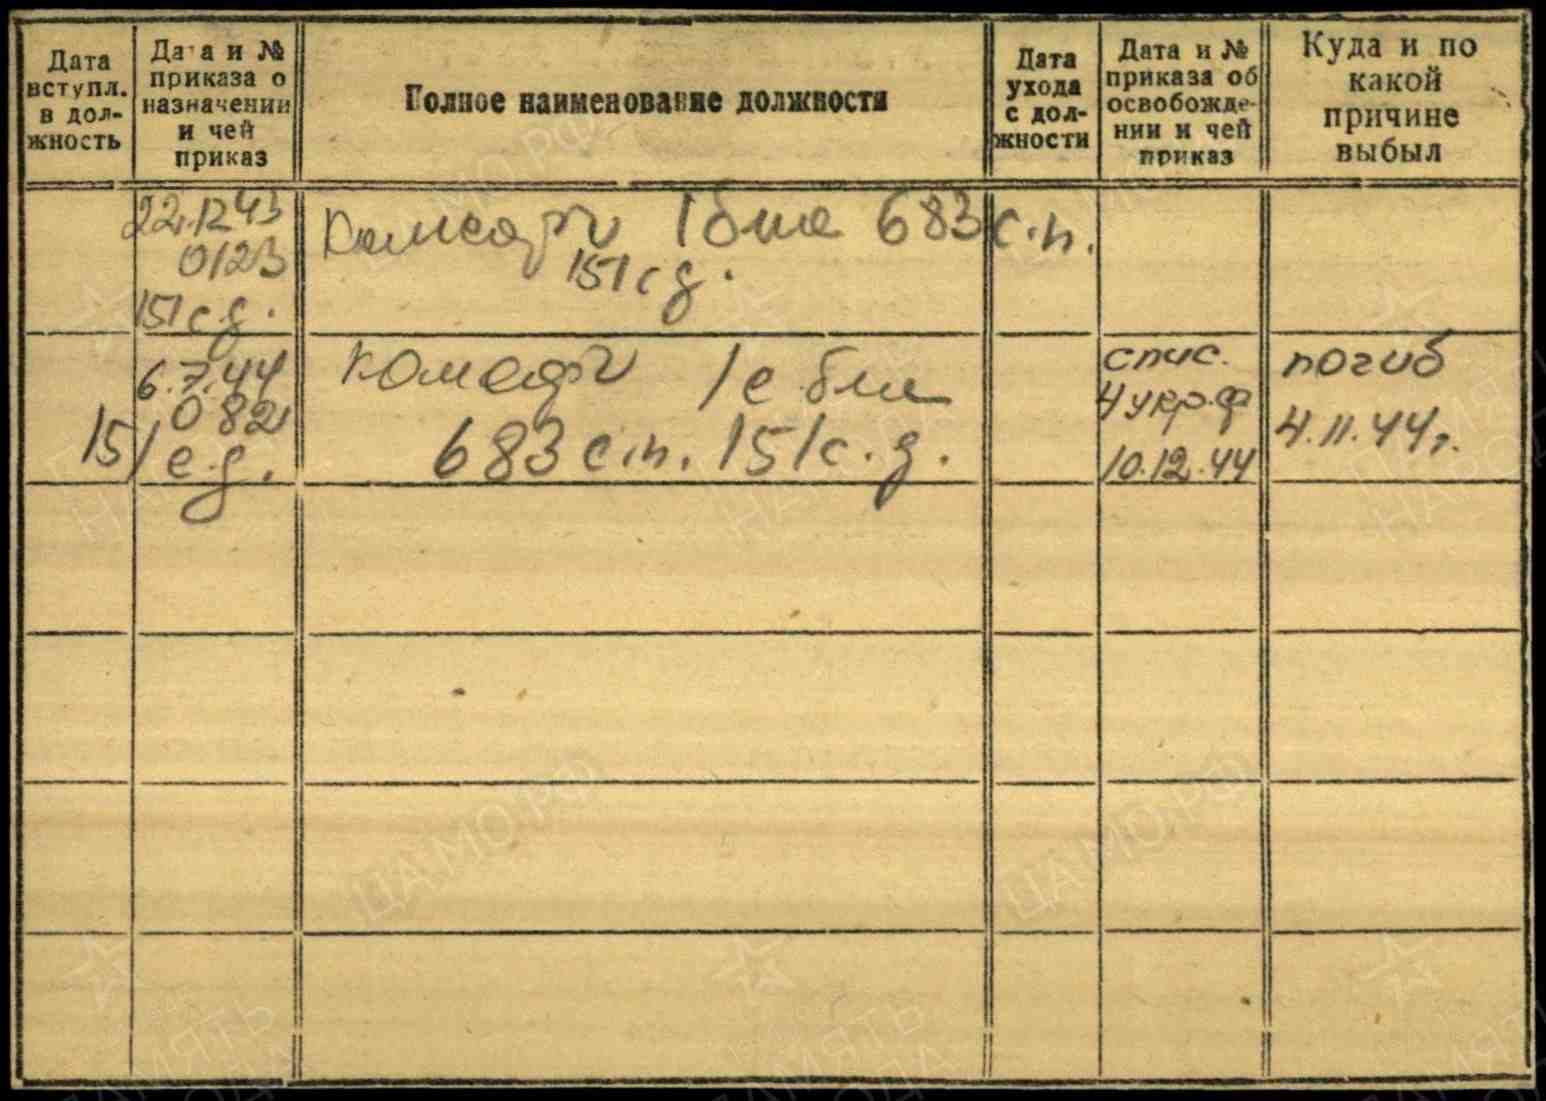 Дата вступл. в дол- жность
Дата и № приказа о назначении и чей приказ
Полное наименование должности
Дата ухода с дол- жности
Дата и № приказа об освобожде- нии и чей приказ
Куда и по какой причине выбыл
22.12.43
0123
151 с д.
1 б-на 683 с.п.
151 с д.
6.7.44
0 82
151 с.д.
683 с.п. 151 с.д.
спис.
4 укр.ф
10.12.44
погиб
4.11.44г.
ЦАМО.РФ
ПАМЯТЬ
НАРОДА